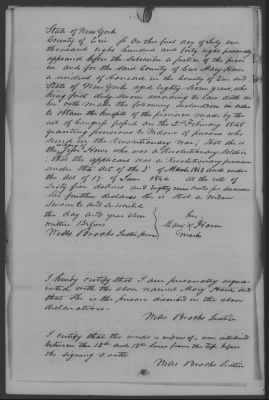 State of New York
County of Erie } On this first day of July one
thousand eight hundred and forty eight personally
appeared before the Subscriber a Justice of the peace
in and for the said County of Erie Mary Haun
a resident of in the County of Erie and
State of New York aged eighty years, who
being first duly Sworn according to Law doth on
her oath make the following declaration in order
to obtain the benefits of the provision made by the
act of Congress passed on the 2nd February 1848
granting pensions to Widows of persons who
served in the Revolutionary war; That she is
the Haun who was a Revolutionary Soldier
that the applicant was a Revolutionary pensioner
under the Act of the 3d of March 1843 and under
the Act of 17th of June 1844 at the rate of
Sixty five dollars and eighty nine cents per annum
She further declares she is still a widow
Sworn to and Subscribed
the day and year above
written Before
Wells Brooks Justice
her
Mary X Haun
mark
I hereby certify that I am personally acquai
nted with the above named Mary Haun and
that she is the person described in the above
declaration.
Wells Brooks Justice
I certify that the words widow of were interlined
between the 12th and 13th lines from the top before
the signing & oath
Wells Brooks Justice